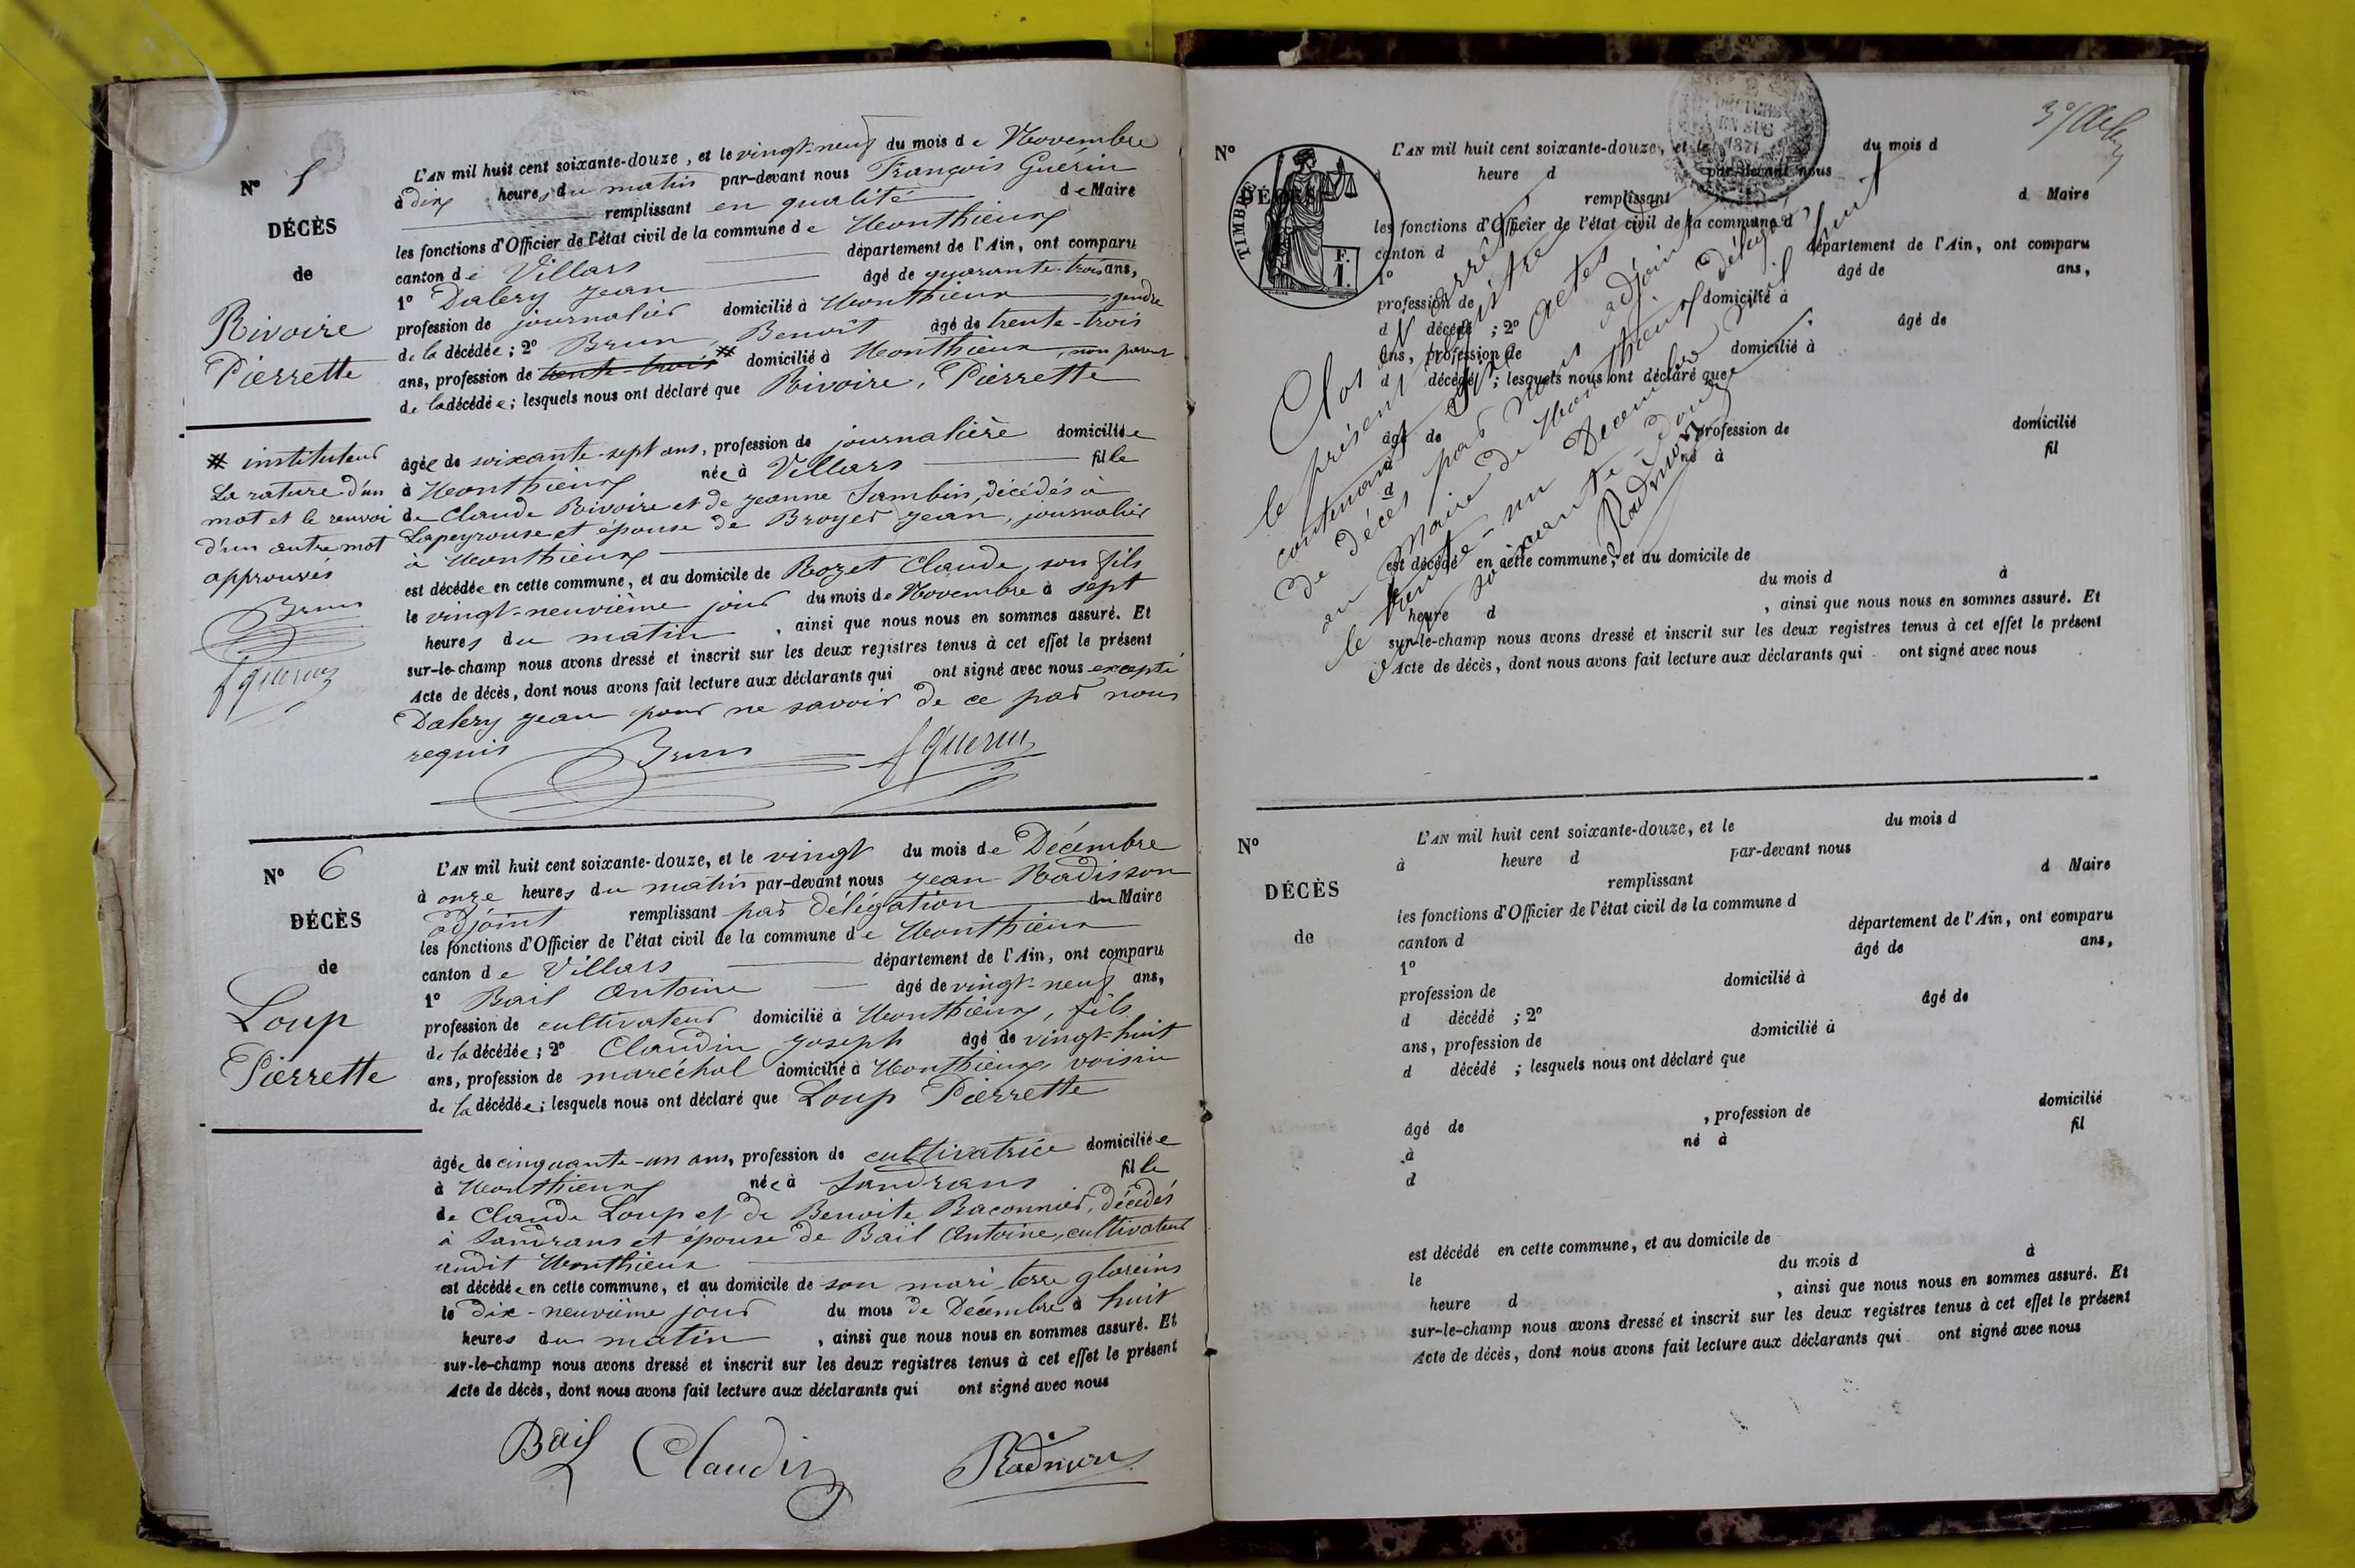 N° 5
DÉCÈS
de
Rivoire
Pierrette
# instituteur
La rature d'un
mot et le renvoi
d'un autre mot
approuvés
Brun
f Guerin
L'AN mil huit cent soixante-douze, et le vingt-neuf du mois de Novembre
à dix heures du matin par-devant nous François Guérin
remplissant en qualité de Maire
les fonctions d'Officier de l'état civil de la commune de Monthieux
canton de Villars département de l'Ain, ont comparu
1° Dalery Jean âgé de quarante-trois ans,
profession de journalier domicilié à Monthieux, gendre
de la décédée ; 2° Brun, Benoit âgé de trente-trois
ans, profession de trente-trois # domicilié à Monthieux, non parent
de la décédée ; lesquels nous ont déclaré que Rivoire, Pierrette
âgée de soixante-sept ans, profession de journalière domiciliée
à Monthieux née à Villars fille
de Claude Rivoire et de Jeanne Sambin, décédés à
Lapeyrouse et épouse de Broyer Jean, journalier
à Monthieux
est décédée en cette commune, et au domicile de Rozet Claude, son fils
le vingt-neuvième jour du mois de Novembre à sept
heures du matin, ainsi que nous nous en sommes assuré. Et
sur-le-champ nous avons dressé et inscrit sur les deux registres tenus à cet effet le présent
Acte de décès, dont nous avons fait lecture aux déclarants qui ont signé avec nous excepté
Dalery Jean pour ne savoir de ce par nous
requis Brun f Guerin
N° 6
DÉCÈS
de
Loup
Pierrette
L'AN mil huit cent soixante-douze, et le vingt du mois de Décembre
à onze heures du matin par-devant nous Jean Radisson
adjoint remplissant par délégation du Maire
les fonctions d'Officier de l'état civil de la commune de Monthieux
canton de Villars département de l'Ain, ont comparu
1° Bail Antoine âgé de vingt-neuf ans,
profession de cultivateur domicilié à Monthieux, fils
de la décédée ; 2° Claudin Joseph âgé de vingt-huit
ans, profession de maréchal domicilié à Monthieux, voisin
de la décédée ; lesquels nous ont déclaré que Loup Pierrette
âgée de cinquante-un ans, profession de cultivatrice domiciliée
à Monthieux née à Sandrans fille
de Claude Loup et de Benoite Baconnier, décédés
à Sandrans et épouse de Bail Antoine, cultivateur
audit Monthieux
est décédée en cette commune, et au domicile de son mari terre glareins
le dix-neuvième jour du mois de Décembre à huit
heures du matin, ainsi que nous nous en sommes assuré. Et
sur-le-champ nous avons dressé et inscrit sur les deux registres tenus à cet effet le présent
Acte de décès, dont nous avons fait lecture aux déclarants qui ont signé avec nous
Bail Claudin Radisson
N°
DÉCÈS
TIMBRE
F.
1.
1871
L'AN mil huit cent soixante-douze, et le du mois d
heure d par-devant nous
remplissant d Maire
les fonctions d'Officier de l'état civil de la commune d
canton d département de l'Ain, ont comparu
1° âgé de ans,
profession de domicilié à
d décédé ; 2° âgé de
ans, profession de domicilié à
d décédé ; lesquels nous ont déclaré que
âgé de profession de domicilié
à né à fil
d
est décédé en cette commune, et au domicile de
le du mois d à
heure d , ainsi que nous nous en sommes assuré. Et
sur-le-champ nous avons dressé et inscrit sur les deux registres tenus à cet effet le présent
Acte de décès, dont nous avons fait lecture aux déclarants qui ont signé avec nous
Clos et arrêté
le présent registre
contenant six actes
de décès par nous adjoint délégué
au Maire de Monthieux
le trente-un Décembre mil huit
cent soixante-douze.
Radisson
N°
DÉCÈS
de
L'AN mil huit cent soixante-douze, et le du mois d
à heure d par-devant nous
remplissant d Maire
les fonctions d'Officier de l'état civil de la commune d
canton d département de l'Ain, ont comparu
1° âgé de ans,
profession de domicilié à
d décédé ; 2° âgé de
ans, profession de domicilié à
d décédé ; lesquels nous ont déclaré que
âgé de , profession de domicilié
à né à fil
d
est décédé en cette commune, et au domicile de
le du mois d à
heure d , ainsi que nous nous en sommes assuré. Et
sur-le-champ nous avons dressé et inscrit sur les deux registres tenus à cet effet le présent
Acte de décès, dont nous avons fait lecture aux déclarants qui ont signé avec nous